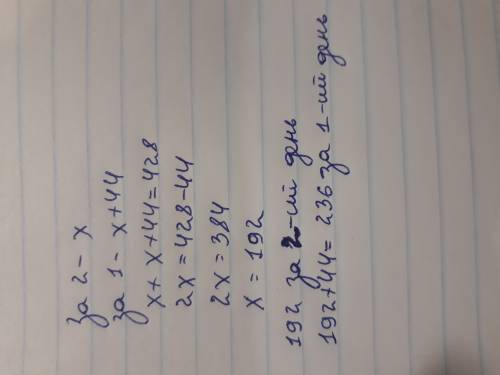 за 2 - x
за 1 - x+44
x+x+44=428
2x=428-44
2x=384
x=192
192 за 2-ий день
192+44=236 за 1-ий день